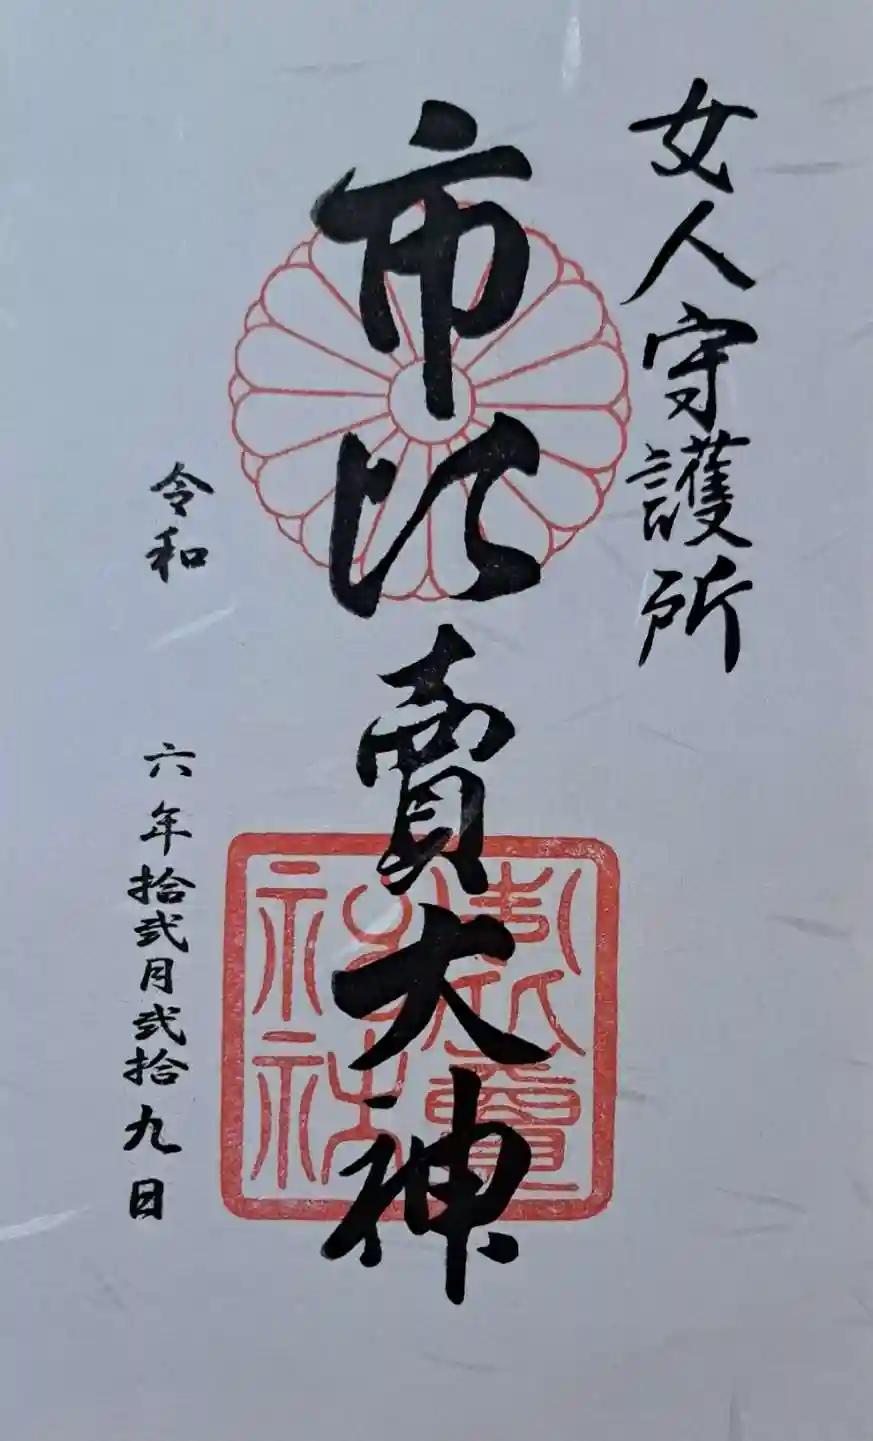 女人守護所
市比賣大神
令和 六年拾弐月弐拾九日